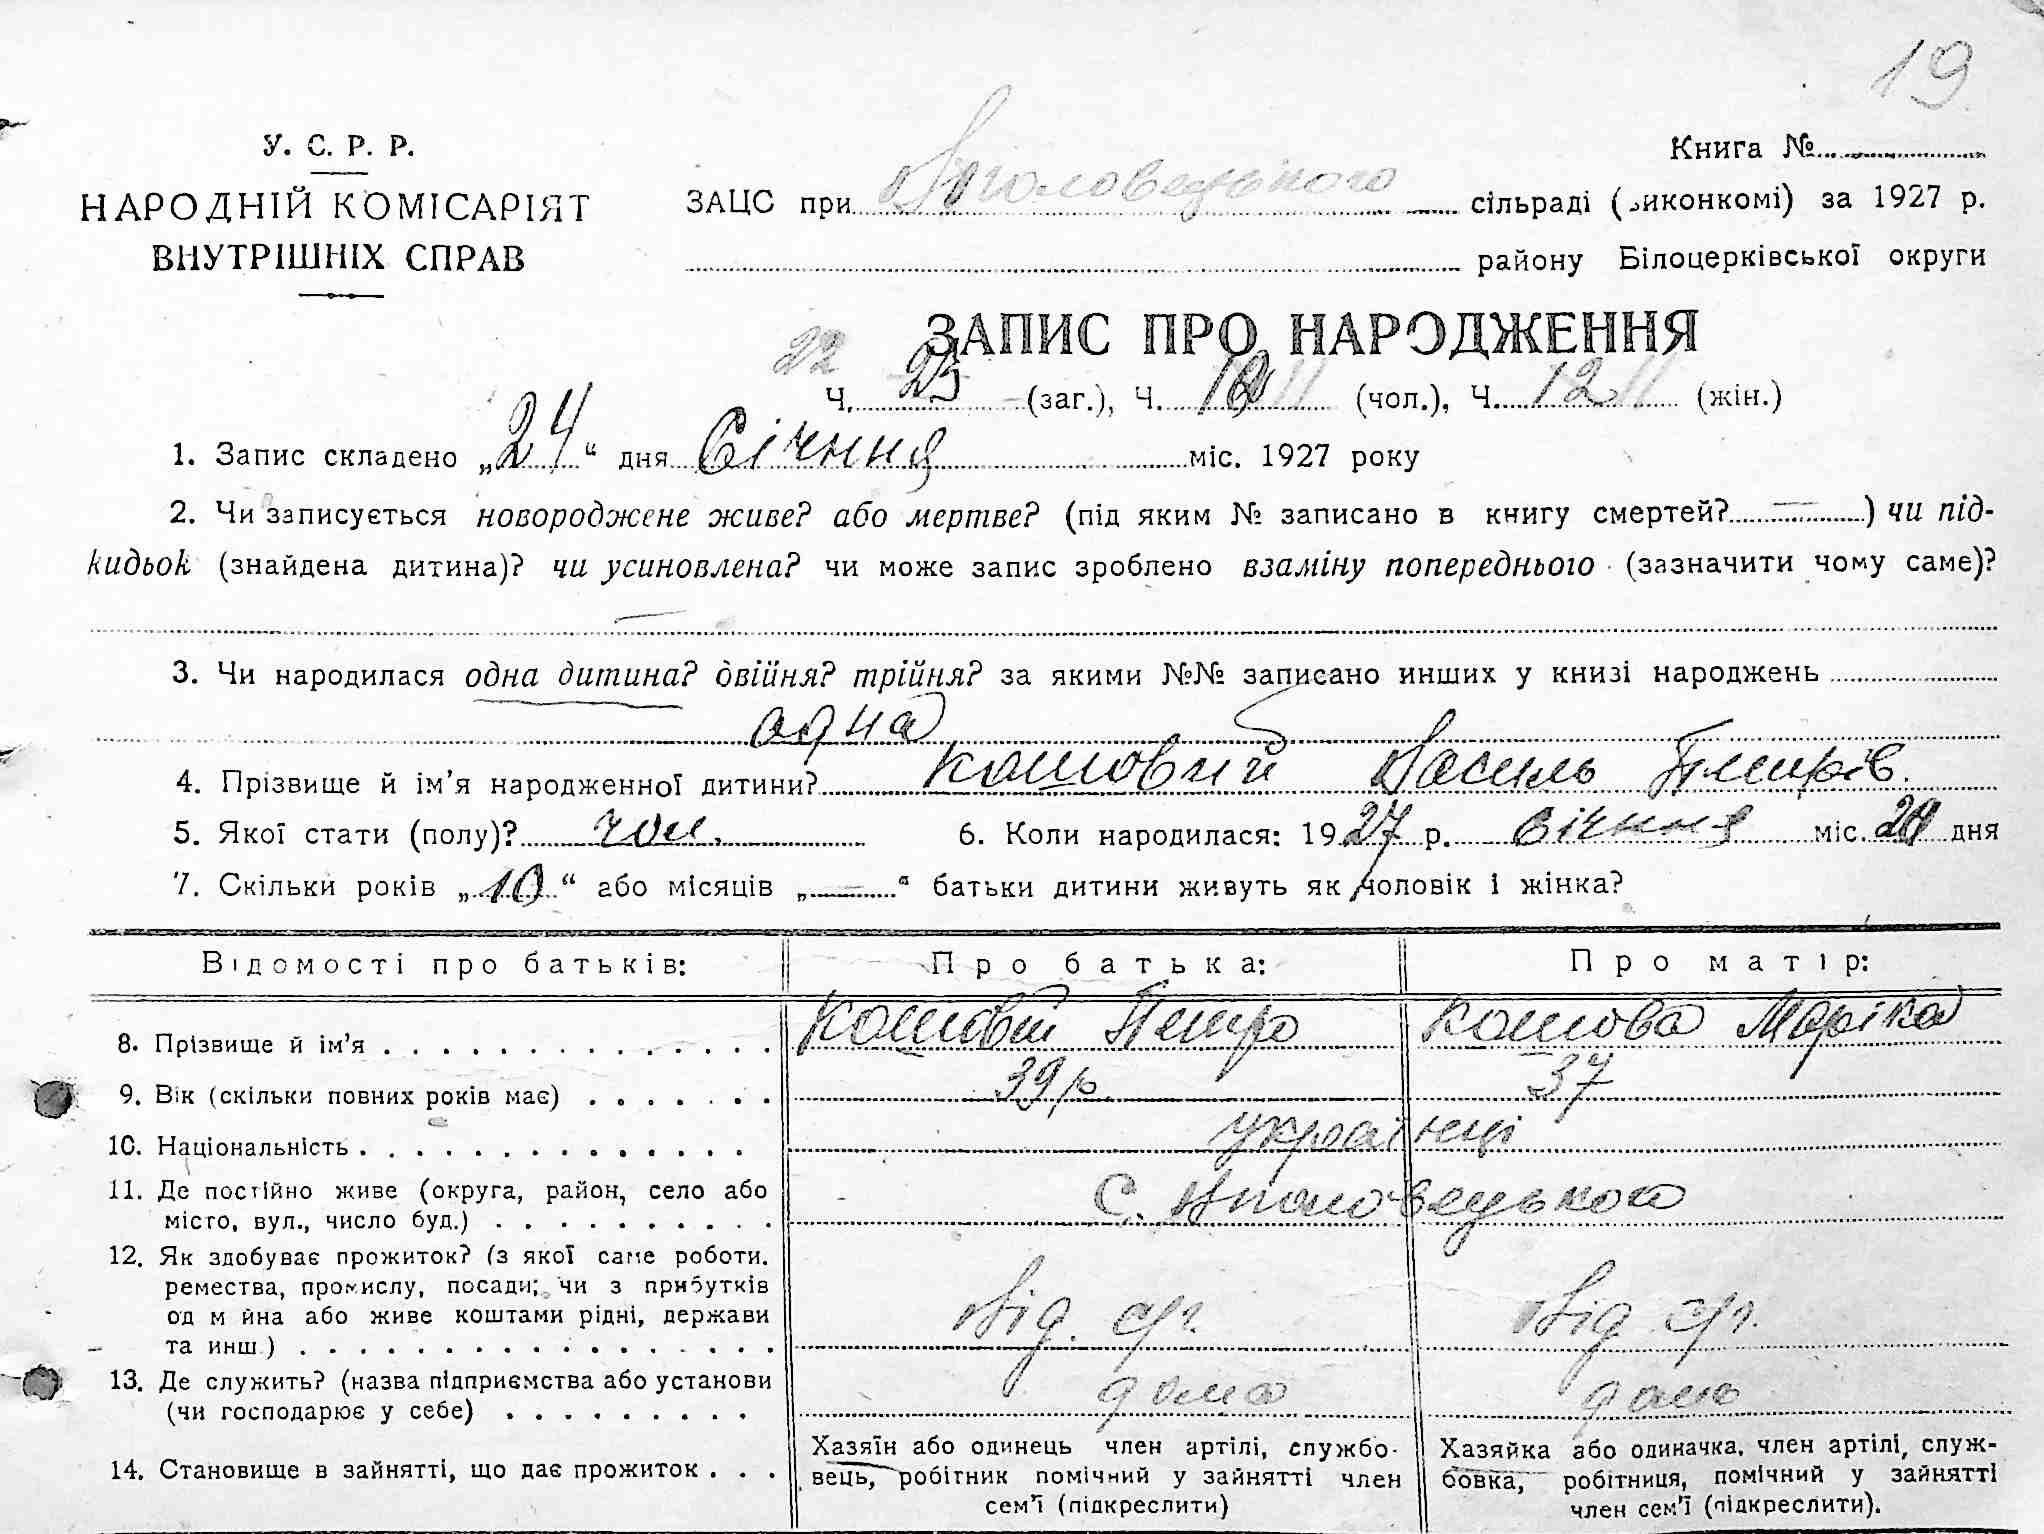 19
У. С. Р. Р.
НАРОДНІЙ КОМІСАРІЯТ
ВНУТРІШНІХ СПРАВ
Книга №
ЗАЦС при сільраді (виконкомі) за 1927 р.
району Білоцерківської округи
ЗАПИС ПРО НАРОДЖЕННЯ
22
Ч. 23 (заг.), Ч. (чол.), Ч. 12 11 (жін.)
1. Запис складено „24“ дня Січння міс. 1927 року
2. Чи записується новороджене живе? або мертве? (під яким № записано в книгу смертей? —) чи під-
кидьок (знайдена дитина)? чи усиновлена? чи може запис зроблено взаміну попереднього (зазначити чому саме)?
—
3. Чи народилася одна дитина? двійня? трійня? за якими №№ записано инших у книзі народжень
одна
4. Прізвище й ім’я народженної дитини? Кошовий Василь Петрів.
5. Якої стати (полу)? чол. 6. Коли народилася: 1927 р. січння міс. дня
7. Скільки років „10“ або місяців „—“ батьки дитини живуть як чоловік і жінка?
Відомості про батьків: Про батька: Про матір:
8. Прізвище й ім’я Кошовий Петро Кошова Маріка
9. Вік (скільки повних років має) 39 р. 37
10. Національність українці
11. Де постійно живе (округа, район, село або
місто, вул., число буд.) С.
12. Як здобуває прожиток? (з якої саме роботи.
ремества, промислу, посади; чи з прибутків
од майна або живе коштами рідні, держави
та инш.) Від. с/г. Від с/г.
13. Де служить? (назва підприємства або установи
(чи господарює у себе) дома дома
14. Становище в зайнятті, що дає прожиток
Хазяїн або одинець член артілі, службо-
вець, робітник помічний у зайнятті член
сем’ї (підкреслити)
Хазяйка або одиначка, член артілі, служ-
бовка, робітниця, помічний у зайнятті
член сем’ї (підкреслити).